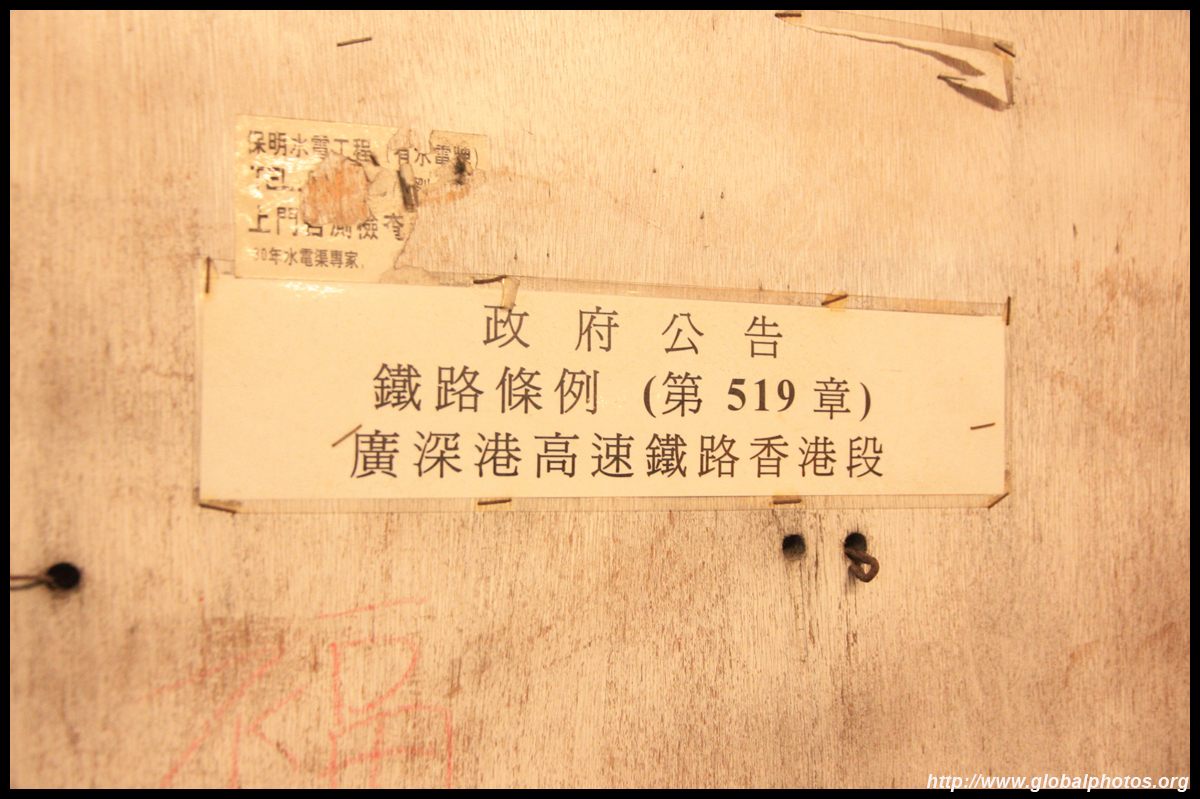 保明水電工程 (有水電牌)
上門 檢查
30年水電渠專家
政府公告
鐵路條例 (第 519 章)
廣深港高速鐵路香港段
http://www.globalphotos.org